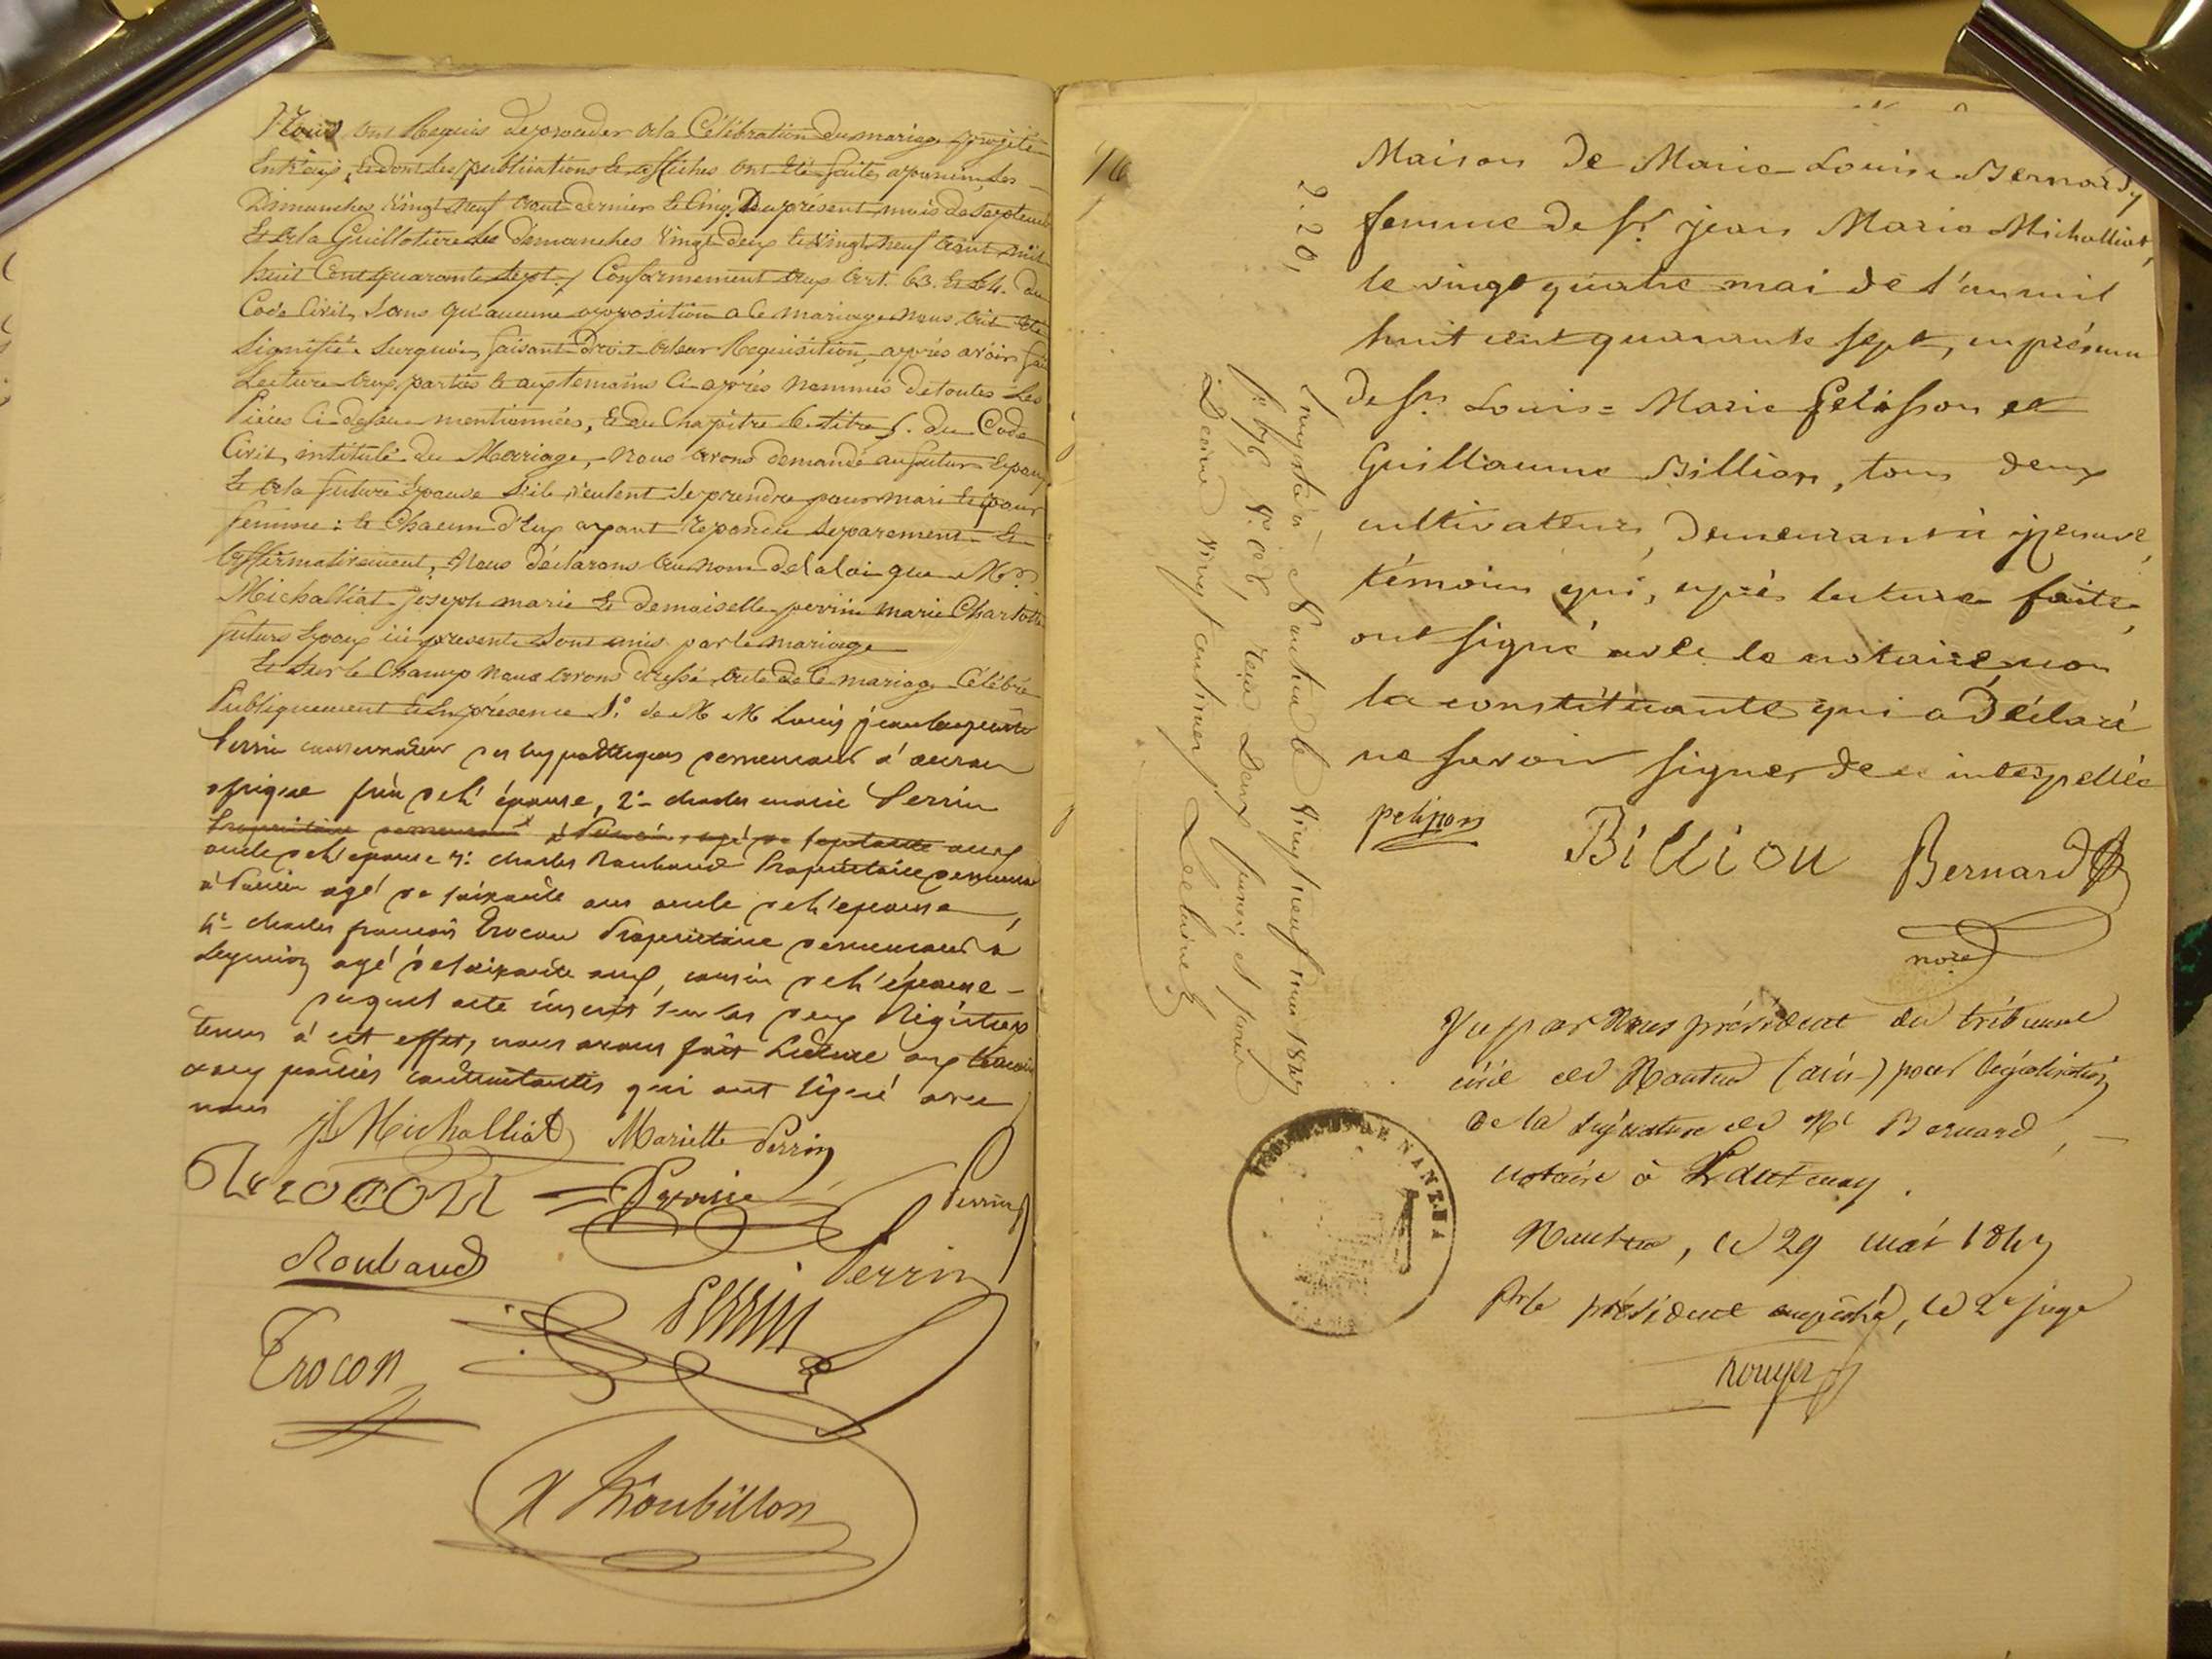 Nous ont Requis de proceder à la Célébration du mariage projeté
Entr'eux, et dont les publications et affiches ont été faites à les
Dimanches Vingt Neuf août dernier et cinq Du présent mois de Septembre
Et à la Guillotière les dimanches Vingt deux et Vingt Neuf août mil
huit Cent quarante Sept, Conformement aux art. 63. et 64. du
Code Civil, Sans qu'aucune opposition à ce mariage nous ait été
Signifiée Surquoi, faisant Droit à leur Requisition, après avoir fait
Lecture aux parties et aux temoins ci après nommés de toutes Les
Pièces Ci-dessus mentionnées, Et du Chapitre 6 titre 5. du Code
Civil, intitulé du Mariage, nous avons demandé au futur Epoux
Et à la future Epouse s'ils veulent se prendre pour mari et pour
femme: et Chacun d'Eux ayant repondu separement et
affirmativement, Nous déclarons au nom de la loi que Mr.
Michalliat joseph marie et demoiselle perrin marie Charlotte
futurs Epoux ici presents Sont unis par le mariage
Et Sur le Champ nous avons dressé acte de ce mariage Célébré
Publiquement et En présence 1.º de M M Louis jean
Perrin conservateur des hypothèques demeurant à
afrique frère de l'épouse, 2º charles marie Perrin
Propriétaire demeurant à agé de septante ans
oncle de l'epouse 3º charles Roubaud Propriétaire demeurant
à agé de soixante ans oncle de l'epouse
4º charles françois Trocon Propriétaire demeurant à
Leyment agé de soixante ans, cousin de l'épouse
duquel acte inscrit sur les deux Régistres
tenus à cet effet, nous avons fait Lecture aux témoins
aux parties contractantes qui ont signé avec
nous
Michalliat Mariette Perrin
Perrin
Roubaud Perrin
Perrin
Trocon
Maison de Marie-Louise Bernard,
femme de Sr. jean Marie Michalliat,
le vingt quatre mai de l'an mil
huit cent quarante sept, en présence
de Srs. Louis = Marie Pelisson et
Guillaume Billion, tous deux
cultivateurs, Demeurant à
témoins qui, après lecture faite,
ont signé avec le notaire, non
la constituante qui a Déclaré
ne savoir signer, de ce interpellée
pelisson Billion Bernard
nore
2.20,
Enregistré à Nantua le Vingt neuf mai 1847
reçu Deux francs et pour
Décime Vingt centimes
Vu par Nous président du tribunal
civil de Nantua (ain) pour légalisation
de la signature de Me Bernard,
notaire à
Nantua, le 29 mai 1847
Pr le président empêché, le 2e juge
Rouyer
DE NANTUA